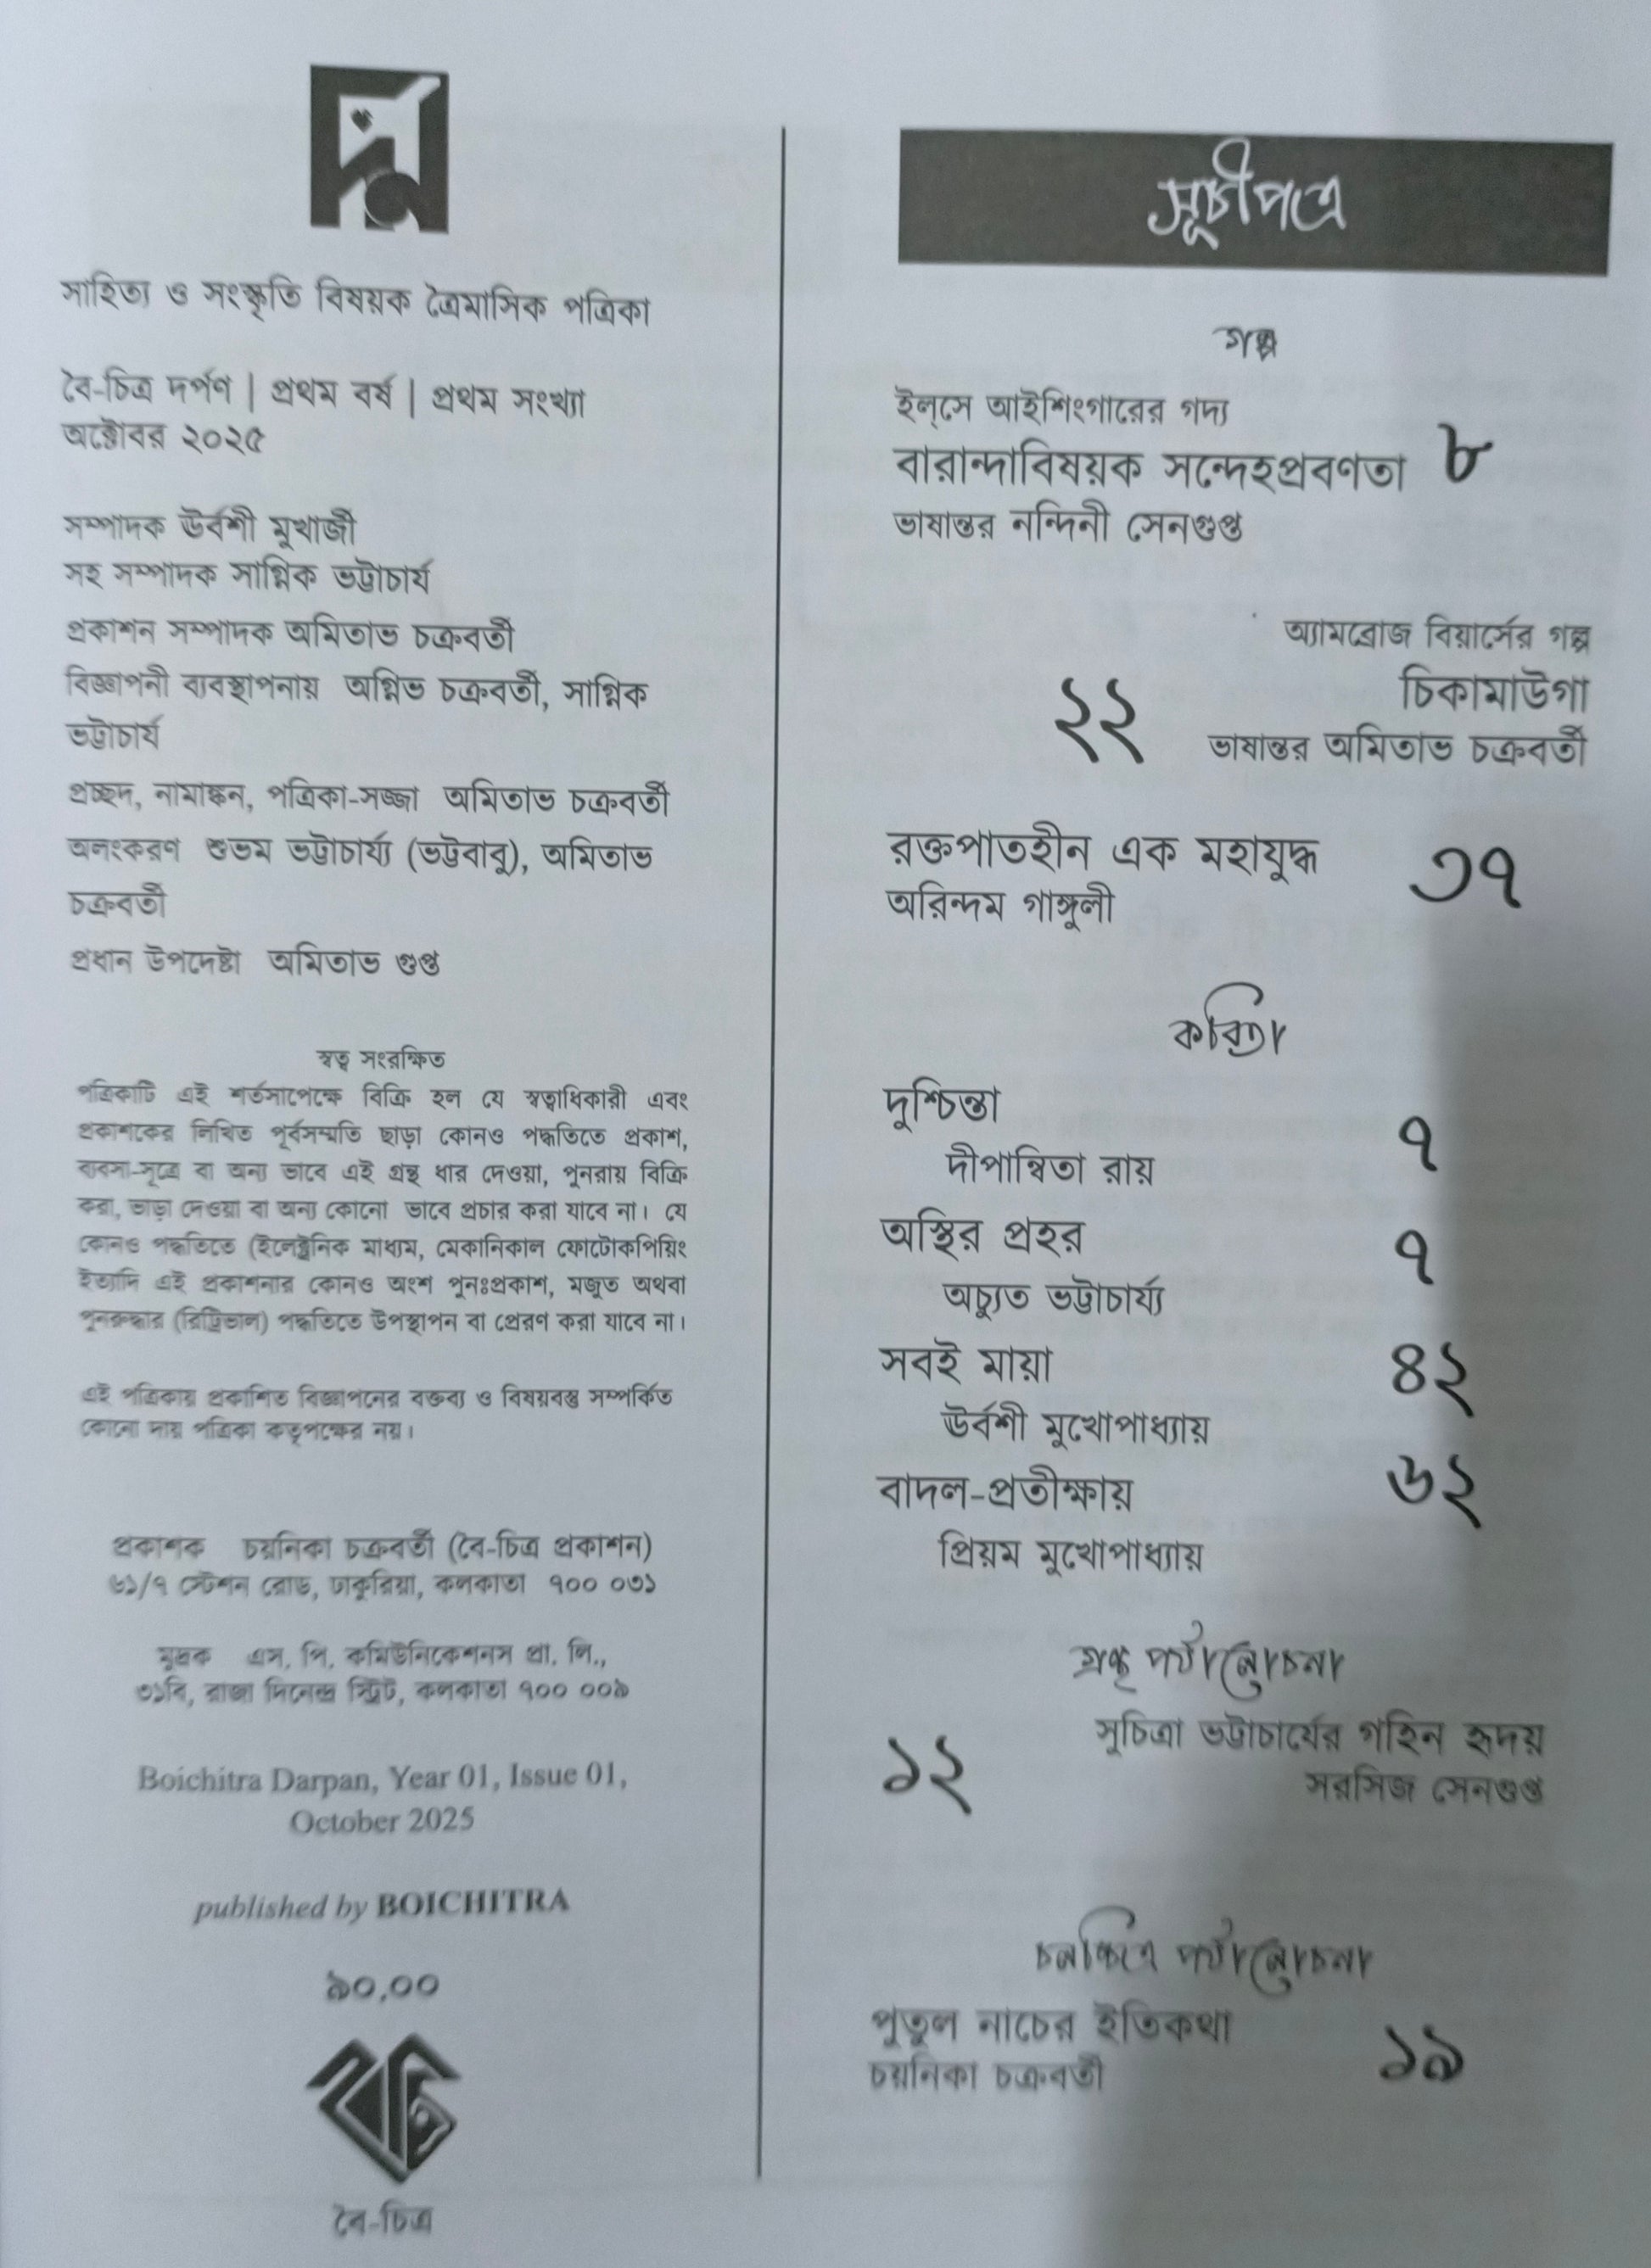 সাহিত্য ও সংস্কৃতি বিষয়ক ত্রৈমাসিক পত্রিকা
বৈ-চিত্র দর্পণ | প্রথম বর্ষ | প্রথম সংখ্যা
অক্টোবর ২০২৫
সম্পাদক ঊর্বশী মুখার্জী
সহ সম্পাদক সাগ্নিক ভট্টাচার্য
প্রকাশন সম্পাদক অমিতাভ চক্রবর্তী
বিজ্ঞাপনী ব্যবস্থাপনায় অগ্নিভ চক্রবর্তী, সাগ্নিক
ভট্টাচার্য
প্রচ্ছদ, নামাঙ্কন, পত্রিকা-সজ্জা অমিতাভ চক্রবর্তী
অলংকরণ শুভম ভট্টাচার্য্য (ভট্টবাবু), অমিতাভ
চক্রবর্তী
প্রধান উপদেষ্টা অমিতাভ গুপ্ত
স্বত্ব সংরক্ষিত
পত্রিকাটি এই শর্তসাপেক্ষে বিক্রি হল যে স্বত্বাধিকারী এবং
প্রকাশকের লিখিত পূর্বসম্মতি ছাড়া কোনও পদ্ধতিতে প্রকাশ,
ব্যবসা-সূত্রে বা অন্য ভাবে এই গ্রন্থ ধার দেওয়া, পুনরায় বিক্রি
করা, ভাড়া দেওয়া বা অন্য কোনো ভাবে প্রচার করা যাবে না। যে
কোনও পদ্ধতিতে (ইলেক্ট্রনিক মাধ্যম, মেকানিকাল ফোটোকপিয়িং
ইত্যাদি এই প্রকাশনার কোনও অংশ পুনঃপ্রকাশ, মজুত অথবা
পুনরুদ্ধার (রিট্রিভাল) পদ্ধতিতে উপস্থাপন বা প্রেরণ করা যাবে না।
এই পত্রিকায় প্রকাশিত বিজ্ঞাপনের বক্তব্য ও বিষয়বস্তু সম্পর্কিত
কোনো দায় পত্রিকা কতৃপক্ষের নয়।
প্রকাশক চয়নিকা চক্রবর্তী (বৈ-চিত্র প্রকাশন)
৬১/৭ স্টেশন রোড, ঢাকুরিয়া, কলকাতা ৭০০ ০৩১
মুদ্রক এস. পি. কমিউনিকেশনস প্রা. লি.,
৩১বি, রাজা দিনেন্দ্র স্ট্রিট, কলকাতা ৭০০ ০০৯
Boichitra Darpan, Year 01, Issue 01,
October 2025
published by BOICHITRA
৯০.০০
বৈ-চিত্র
সূচীপত্র
গল্প
ইল্‌সে আইশিংগারের গদ্য
বারান্দাবিষয়ক সন্দেহপ্রবণতা ৮
ভাষান্তর নন্দিনী সেনগুপ্ত
অ্যামব্রোজ বিয়ার্সের গল্প
চিকামাউগা
২২ ভাষান্তর অমিতাভ চক্রবর্তী
রক্তপাতহীন এক মহাযুদ্ধ ৩৭
অরিন্দম গাঙ্গুলী
কবিতা
দুশ্চিন্তা ৭
দীপান্বিতা রায়
অস্থির প্রহর ৭
অচ্যুত ভট্টাচার্য্য
সবই মায়া ৪২
ঊর্বশী মুখোপাধ্যায়
বাদল-প্রতীক্ষায় ৬২
প্রিয়ম মুখোপাধ্যায়
গ্রন্থ পর্যালোচনা
সুচিত্রা ভট্টাচার্যের গহিন হৃদয়
১২ সরসিজ সেনগুপ্ত
চলচ্চিত্র পর্যালোচনা
পুতুল নাচের ইতিকথা ১৯
চয়নিকা চক্রবর্তী